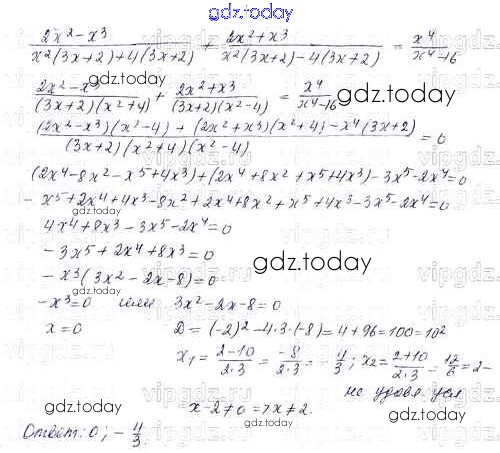 gdz.today
(2x²-x³)/(x²(3x+2)+4(3x+2)) + (2x²+x³)/(x²(3x+2)-4(3x+2)) = x⁴/(x⁴-16)
(2x²-x³)/((3x+2)(x²+4)) + (2x²+x³)/((3x+2)(x²-4)) = x⁴/(x⁴-16)
((2x²-x³)(x²-4)+(2x²+x³)(x²+4)-x⁴(3x+2))/((3x+2)(x²+4)(x²-4)) = 0
(2x⁴-8x²-x⁵+4x³)+(2x⁴+8x²+x⁵+4x³)-3x⁵-2x⁴=0
-x⁵+2x⁴+4x³-8x²+2x⁴+8x²+x⁵+4x³-3x⁵-2x⁴=0
4x⁴+8x³-3x⁵-2x⁴=0
-3x⁵+2x⁴+8x³=0
gdz.today
-x³(3x²-2x-8)=0
-x³=0 или 3x²-2x-8=0
x=0 D=(-2)²-4·3·(-8)=4+96=100=10²
x₁=(2-10)/(2·3)=-8/(2·3)=-4/3; x₂=(2+10)/(2·3)=12/6=2-
не удовл. усл
gdz.today
x-2≠0=>x≠2.
gdz.today
Ответ: 0; -4/3.